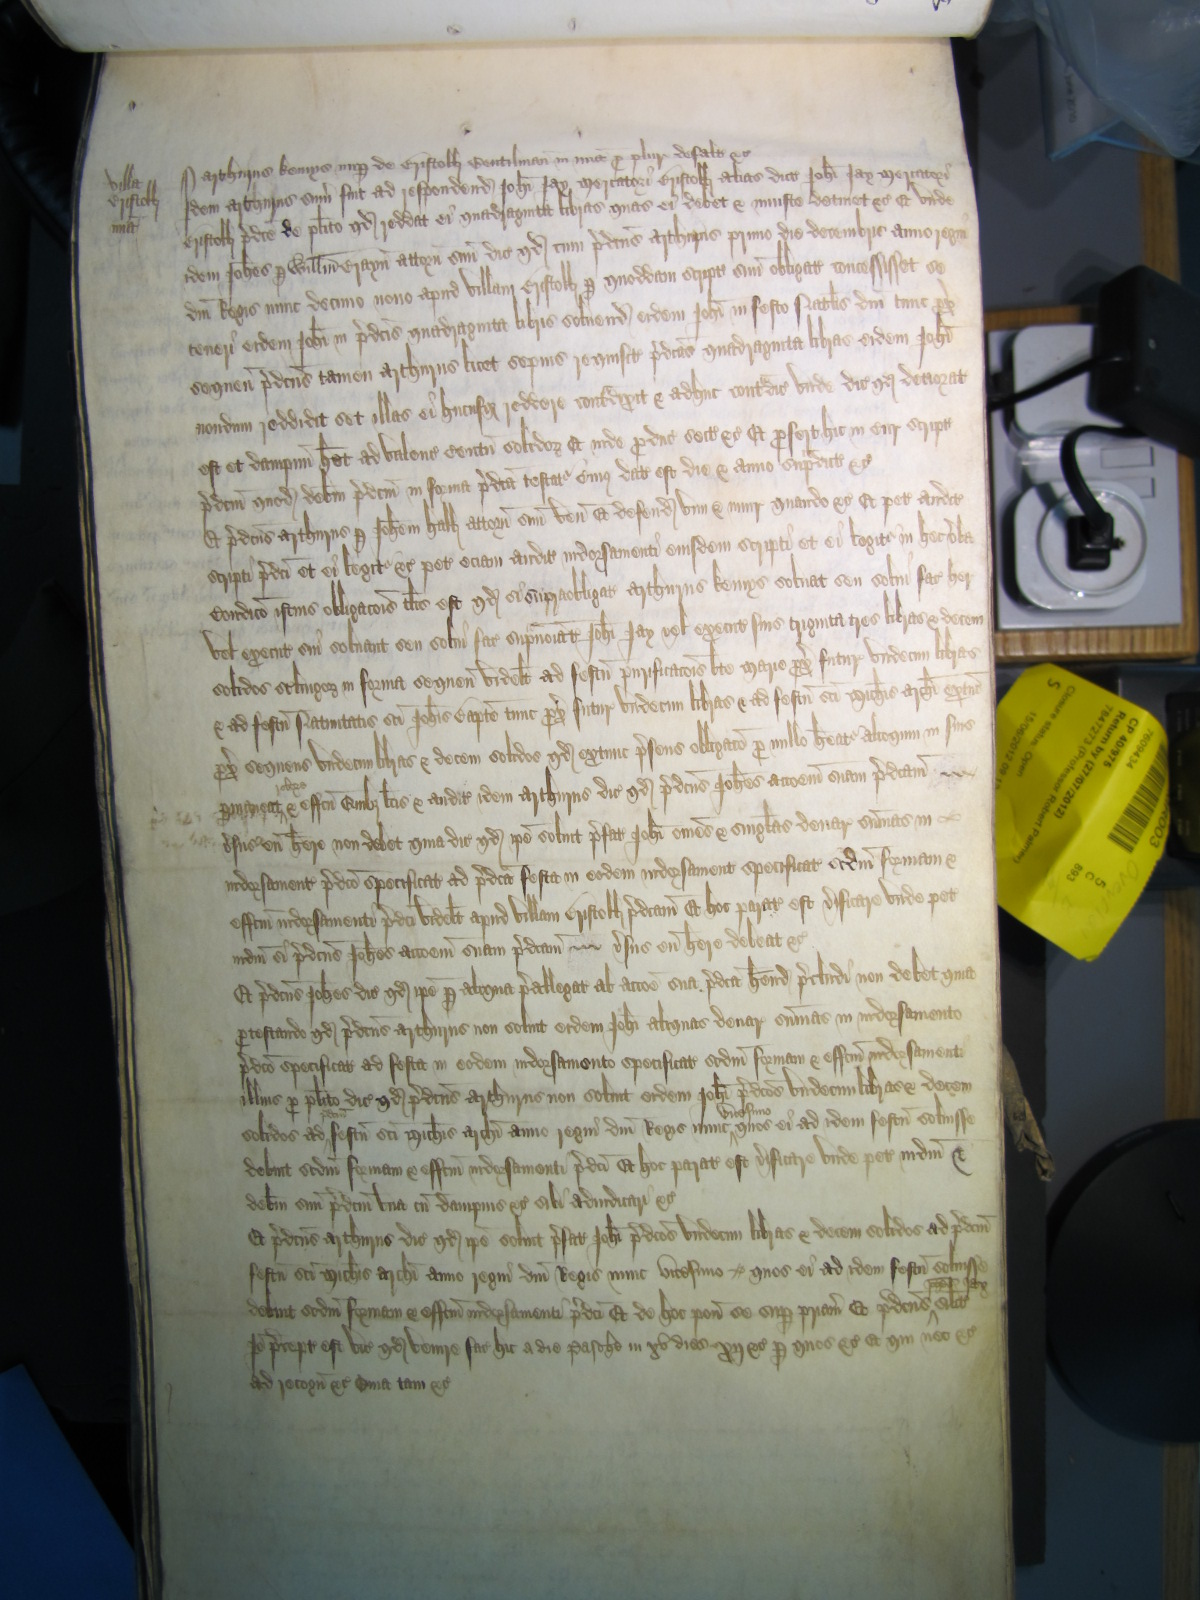 villa
Bristoll
mia
Arthurus Kemys nup de Bristoll Gentilman in mia p plur defalt &c
Idem Arthurus sum fuit ad respondend Johi Jay Mercatori Bristoll alias dict Johi Jay Mercatori
Bristoll pdce de plito qd reddat ei quadraginta libras quas ei debet & iniuste detinet &c Et unde
idem Johes p Willm attorn suu dic qd cum pdcus Arthurus primo die decembris anno regni
dni Regis nunc decimo nono apud villam Bristoll p quoddam script suu obligat concessisset se
teneri eidem Johi in pdcis quadraginta libris solvend eidem Johi in festo Natalis dni tunc px
sequen pdcus tamen Arthurus licet sepius requisit pdcas quadraginta libras eidem Johi
nondum reddidit set illas ei hucusq reddere contradixit & adhuc contradic unde dic qd deteriorat
est et dampnu het ad valenc Centu solidoz Et inde pduc sect &c Et profert hic in cur script
pdcm quod debm pdcm in forma pdca testat cuius dat est die & anno supradict &c
Et pdcus Arthurus p Johem hall attorn suu ven Et defend vim & iniur quando &c Et pet audit
scripti pdci et ei legit &c pet eciam audit indorsamenti eiusdem scripti et ei legit in hec vba
Condico istius obligacois tlis est qd si supraobligat Arthurus Kemys solvat seu solvi fac her
vel execut sui solvant seu solvi fac supnoiat Johi Jay vel execut suis triginta tres libras & decem
solidos sterlingoz in forma sequen videlt ad festu purificacois bte marie px futur undecim libras
& ad festu Nativitatis sci Johis Bapte tunc px futur undecim libras & ad festu sci Michis archi extunc
px sequens undecim libras & decem solidos qd extunc psens obligaco p nullo heat alioquin in suis
robore pmaneat & effcu Quibz lcis & audit idem Arthurus dic qd pdcus Johes accoem suam pdcam
vsus eu here non debet quia dic qd ipe solvit pfat Johi omes & singlas denar summas in
indorsament pdco specificat ad pdca festa in eodem indorsament specificat scdm formam &
effcm indorsamenti pdci videlt apud villam Bristoll pdcam Et hoc parat est vificare unde pet
iudm si pdcus Johes accoem suam pdcam vsus eu here debeat &c
Et pdcus Johes dic qd ipe p aliqua pallegat ab accoe sua pdca hend pcludi non debet quia
ptestando qd pdcus Arthurus non solvit eidem Johi aliquas denar summas in indorsamento
pdco specificat ad festa in eodem indorsamento specificat scdm formam & effcm indorsamenti
illius p plito dic qd pdcus Arthurus non solvit eidem Johi pdcos undecim libras & decem
solidos ad pdcm festu sci Michis archi anno regni dni Regis nunc vicesimo quos ei ad idem festu solvisse
debuit scdm formam & effcm indorsamenti pdci Et hoc parat est vificare unde pet iudm &
debm suu pdcm una cu dampnis &c sibi adiudicari &c
Et pdcus Arthurus dic qd ipe solvit pfat Johi pdcos undecim libras & decem solidos ad pdcm
festu sci Michis archi anno regni dni Regis nunc vicesimo quos ei ad idem festu solvisse
debuit scdm formam & effcm indorsamenti pdci Et de hoc pon se sup priam Et pdcus Jay silit
Io pcept est vic qd venire fac hic a die Pasche in xv dies xij &c p quos &c Et qui nec &c
ad recogn &c Quia tam &c
7609434
CP 40/976
Return by (27/07/2012)
7647273 (Professor Robert Palmer)
Closure status: Open
15/06/2012 09:1
S
R003
5 C
893